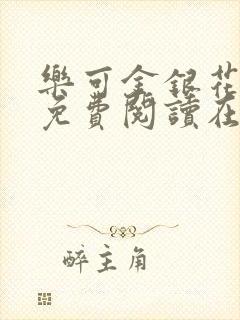 樂可金銀花
免費閱讀在
醉主角